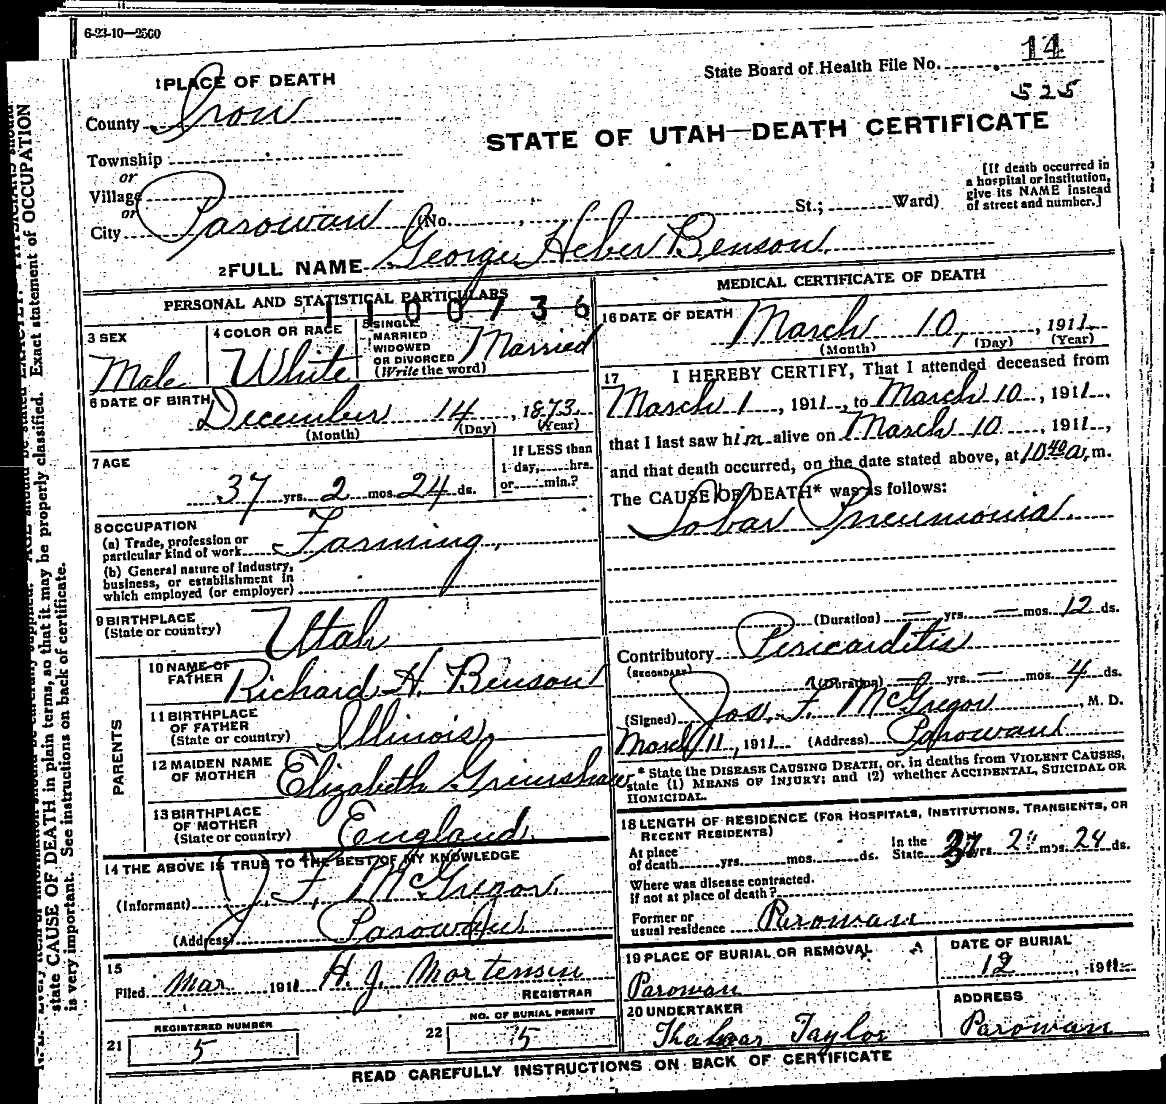 6-23-10—2500
State Board of Health File No. 14
525
1 PLACE OF DEATH
County Iron
STATE OF UTAH—DEATH CERTIFICATE
Township
or
Village
or
City Parowan (No. , St.; Ward)
[If death occurred in
a hospital or institution,
give its NAME instead
of street and number.]
2 FULL NAME George Heber Benson
PERSONAL AND STATISTICAL PARTICULARS
1100736
3 SEX
Male
4 COLOR OR RACE
White
5 SINGLE
MARRIED
WIDOWED
OR DIVORCED
(Write the word)
Married
6 DATE OF BIRTH
December 14, 1873
(Month) (Day) (Year)
7 AGE
37 yrs. 2 mos. 24 ds.
If LESS than
1 day, hrs.
or min.?
8 OCCUPATION
(a) Trade, profession or
particular kind of work Farming,
(b) General nature of industry,
business, or establishment in
which employed (or employer)
9 BIRTHPLACE
(State or country) Utah
PARENTS
10 NAME OF
FATHER Richard H. Benson
11 BIRTHPLACE
OF FATHER
(State or country) Illinois
12 MAIDEN NAME
OF MOTHER Elizabeth Grimshaw
13 BIRTHPLACE
OF MOTHER
(State or country) England
14 THE ABOVE IS TRUE TO THE BEST OF MY KNOWLEDGE
(Informant) J. F. McGregor
(Address) Parowan
15
Filed Mar 1911 H. J. Mortensen
REGISTRAR
21 REGISTERED NUMBER
5
22 NO. OF BURIAL PERMIT
5
MEDICAL CERTIFICATE OF DEATH
16 DATE OF DEATH
March 10, 1911
(Month) (Day) (Year)
17 I HEREBY CERTIFY, That I attended deceased from
March 1, 1911, to March 10, 1911,
that I last saw him alive on March 10, 1911,
and that death occurred, on the date stated above, at 10 40 a. m.
The CAUSE OF DEATH* was as follows:
Lobar Pneumonia.
(Duration) — yrs. — mos. 12 ds.
Contributory Pericarditis
(SECONDARY)
(Duration) — yrs. — mos. 4 ds.
(Signed) Jos. F. McGregor, M. D.
March 11, 1911 (Address) Parowan
* State the DISEASE CAUSING DEATH, or, in deaths from VIOLENT CAUSES,
state (1) MEANS OF INJURY; and (2) whether ACCIDENTAL, SUICIDAL OR
HOMICIDAL.
18 LENGTH OF RESIDENCE (FOR HOSPITALS, INSTITUTIONS, TRANSIENTS, OR
RECENT RESIDENTS)
At place
of death yrs. mos. ds.
In the
State 37 yrs. 2 mos. 24 ds.
Where was disease contracted.
if not at place of death?
Former or
usual residence Parowan
19 PLACE OF BURIAL OR REMOVAL
Parowan
DATE OF BURIAL
12, 1911
20 UNDERTAKER
Taylor
ADDRESS
Parowan
READ CAREFULLY INSTRUCTIONS ON BACK OF CERTIFICATE
Exact statement of OCCUPATION
state CAUSE OF DEATH in plain terms, so that it may be properly classified.
is very important. See instructions on back of certificate.